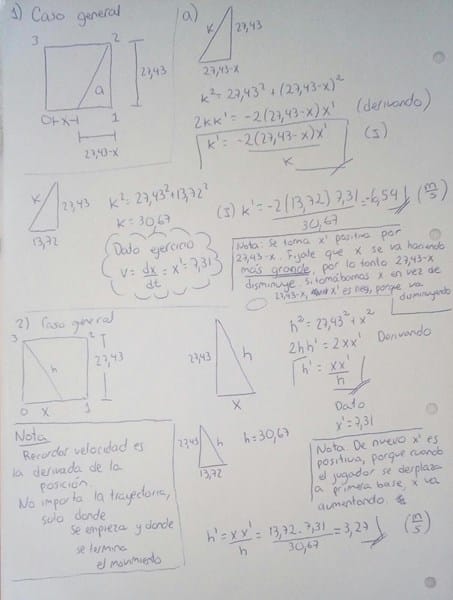 1) Caso general
3
2
27,43
a
0
x
1
27,43-x
a)
k
27,43
27,43-x
k² = 27,43² + (27,43-x)²
2kk' = -2(27,43-x)x' (derivando)
k' = -2(27,43-x)x' (I)
k
k
27,43
13,72
k² = 27,43² + 13,72²
k = 30,67
Dato ejercicio
V = dx/dt = x' = 7,31
(I) k' = -2(13,72)7,31 = -6,54 (m/s)
30,67
Nota: Se toma x' positiva por
27,43-x. Fíjate que x se va haciendo
más grande, por lo tanto 27,43-x
disminuye. Si tomábamos x en vez de
27,43-x, x' es neg, porque va
disminuyendo
2) Caso general
3
2
27,43
h
0
x
1
27,43
h
x
h² = 27,43² + x²
2hh' = 2xx' Derivando
h' = xx'
h
Dato
x' = 7,31
Nota
Recordar velocidad es
la derivada de la
posición.
No importa la trayectoria,
solo donde
se empieza y donde
se termina
el movimiento
27,43
h
13,72
h = 30,67
Nota De nuevo x' es
positiva, porque cuando
el jugador se desplaza
a primera base, x va
aumentando.
h' = xx' = 13,72 . 7,31 = 3,27 (m/s)
h 30,67